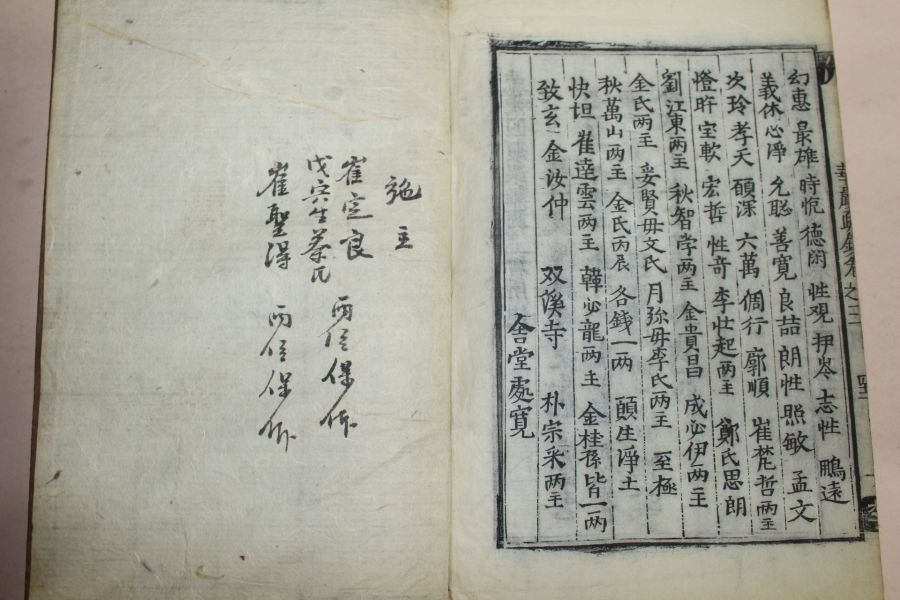 幻惠 最雄 時悅 德闲 性观 押岺 志性 鵬遠
義休 心淨 允聡 善寬 良喆 朗性 照敏 孟文
次玲 孝天 碩深 六萬 倜行 廓順 崔梵哲两主
燈旿 宝軟 宏哲 性奇 李壮起两主 鄭氏思朗
劉江東两主 秋智学两主 金貴昌 成必伊两主
金氏两主 妥賢毋文氏 月弥毋李氏两主 至極
秋萬山两主 金氏丙辰 各錢一两 願生淨土
快坦 崔逵雲两主 韓必龍两主 金桂孫皆一两
致玄 金汝仲 双溪寺 朴宗采两主
舍堂處寬
華嚴疏鈔卷之二
施主
崔定良 两位保体
戊寅生蔡氏
崔聖得 两位保体